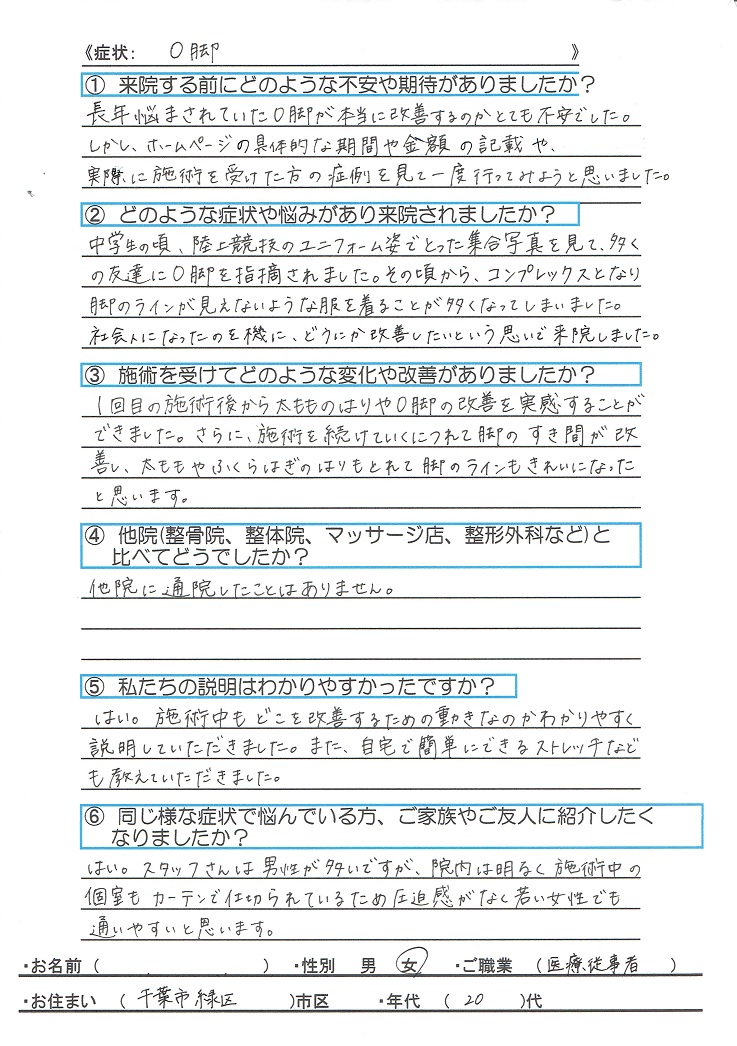 《症状： O脚 》
① 来院する前にどのような不安や期待がありましたか？
長年悩まされていたO脚が本当に改善するのかとても不安でした。
しかし、ホームページの具体的な期間や金額の記載や、
実際に施術を受けた方の症例を見て一度行ってみようと思いました。
② どのような症状や悩みがあり来院されましたか？
中学生の頃、陸上競技のユニフォーム姿でとった集合写真を見て、多く
の友達にO脚を指摘されました。その頃から、コンプレックスとなり
脚のラインが見えないような服を着ることが多くなってしまいました。
社会人になったのを機に、どうにか改善したいという思いで来院しました。
③ 施術を受けてどのような変化や改善がありましたか？
1回目の施術後から太もものはりやO脚の改善を実感することが
できました。さらに、施術を続けていくにつれて脚のすき間が改
善し、太ももやふくらはぎのはりもとれて脚のラインもきれいになった
と思います。
④ 他院(整骨院、整体院、マッサージ店、整形外科など)と
比べてどうでしたか？
他院に通院したことはありません。
⑤ 私たちの説明はわかりやすかったですか？
はい。施術中もどこを改善するための動きなのかわかりやすく
説明していただきました。また、自宅で簡単にできるストレッチなど
も教えていただきました。
⑥ 同じ様な症状で悩んでいる方、ご家族やご友人に紹介したく
なりましたか？
はい。スタッフさんは男性が多いですが、院内は明るく施術中の
個室もカーテンで仕切られているため圧迫感がなく若い女性でも
通いやすいと思います。
・お名前（ ） ・性別 男 女 ・ご職業 （医療従事者 ）
・お住まい （千葉市緑区 ）市区 ・年代 （ 20 ）代